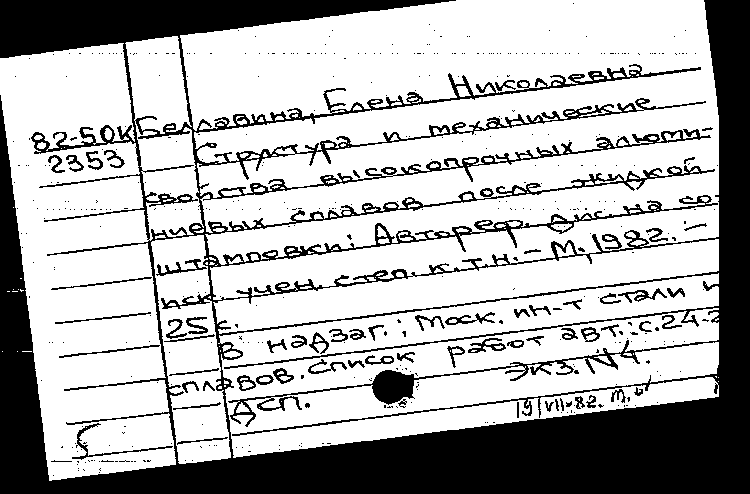 Беллавина, Елена Николаевна
82-50К
2353
Структура и механические
свойства высокопрочных алюми-
ниевых сплавов после жидкой
штамповки: Автореф. дис. на со-
иск. учен. степ. к.т.н. – М., 1982. –
25 с.
В надзаг.: Моск. ин-т стали и
сплавов. Список работ авт.: с. 24-2
ДСП. Экз. N4.
19/VII-82.